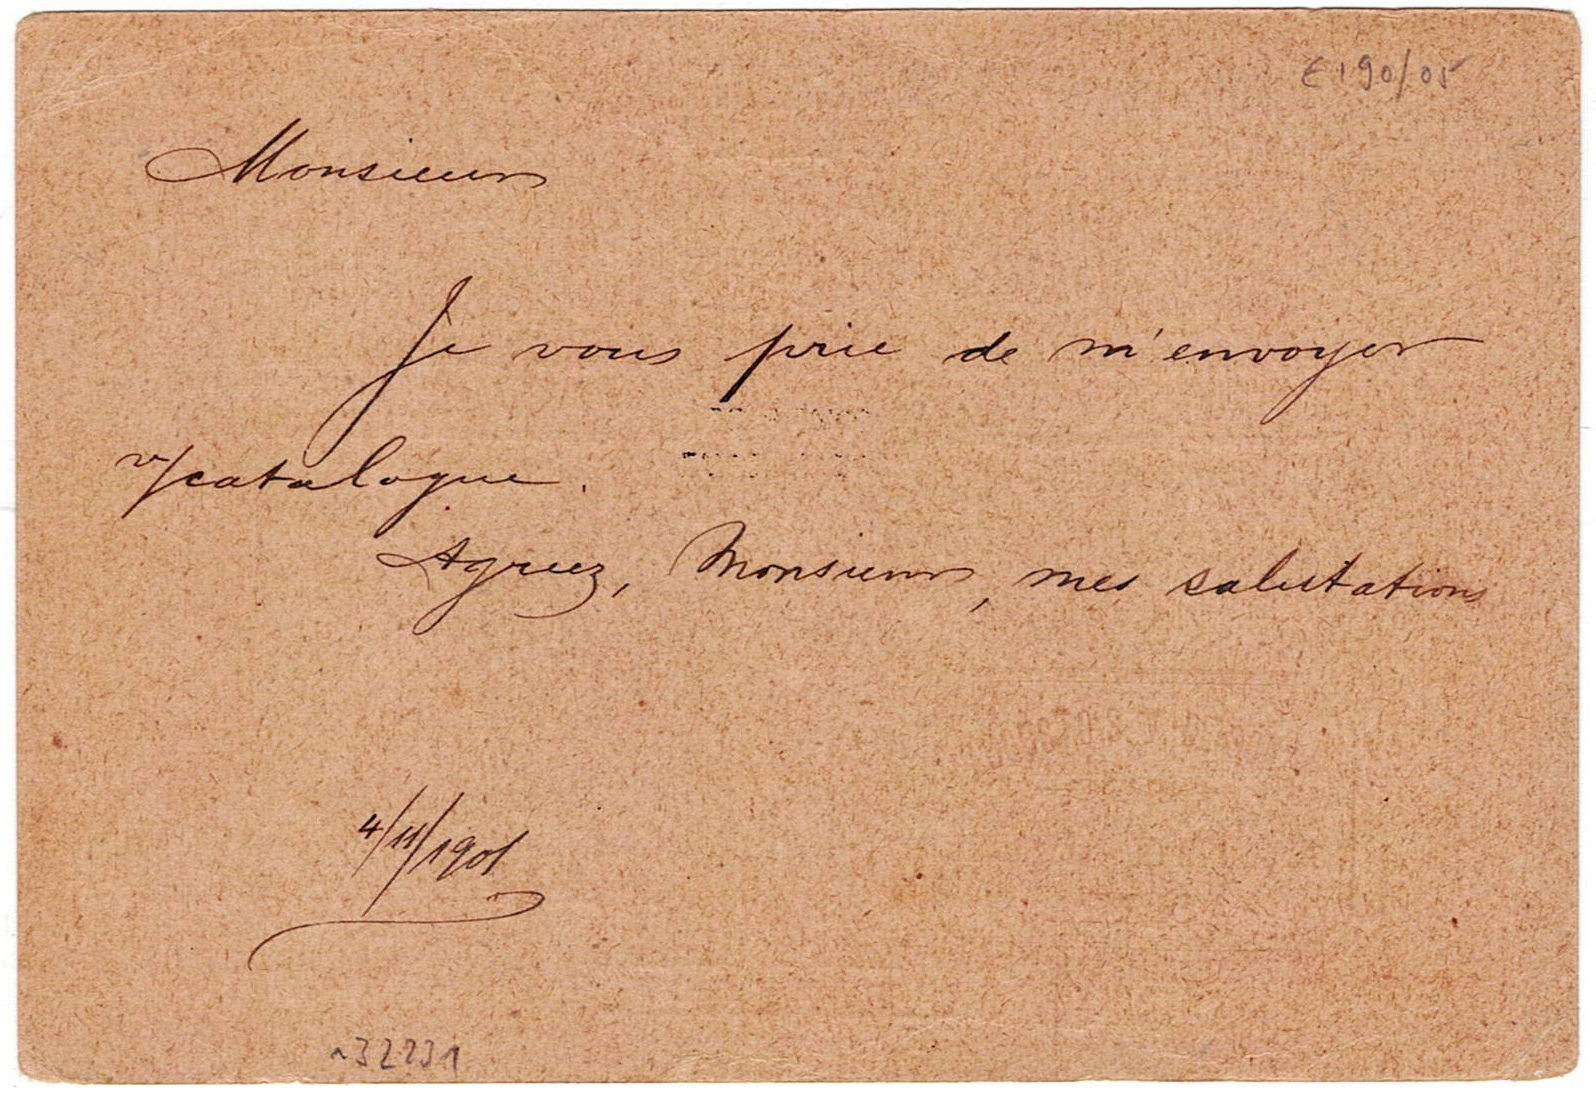 E 190/05
Monsieur
Je vous prie de m'envoyer
v/catalogue.
Agréez, Monsieur, mes salutations
4/11/1901
32231